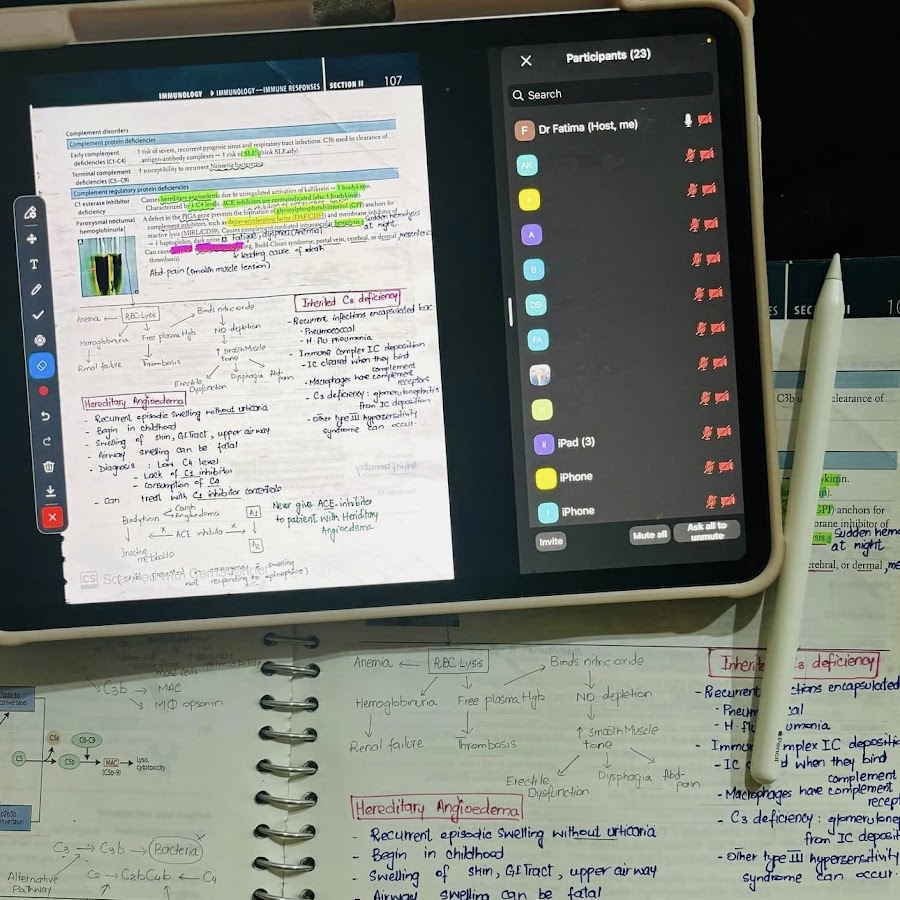 IMMUNOLOGY ▶ IMMUNOLOGY—IMMUNE RESPONSES SECTION II 107
Complement disorders
Complement protein deficiencies
Early complement deficiencies (C1-C4)
↑ risk of severe, recurrent pyogenic sinus and respiratory tract infections. C3b used in clearance of
antigen-antibody complexes → ↑ risk of SLE (think SLEarly).
Terminal complement deficiencies (C5–C9)
↑ susceptibility to recurrent Neisseria bacteremia.
Complement regulatory protein deficiencies
C1 esterase inhibitor deficiency
Causes hereditary angioedema due to unregulated activation of kallikrein → ↑ bradykinin.
Characterized by ↓ C4 levels. ACE inhibitors are contraindicated (also ↑ bradykinin).
Paroxysmal nocturnal hemoglobinuria
A defect in the PIGA gene prevents the formation of glycosylphosphatidylinositol (GPI) anchors for
complement inhibitors, such as decay-accelerating factor (DAF/CD55) and membrane inhibitor of
reactive lysis (MIRL/CD59). Causes complement-mediated intravascular hemolysis
Sudden hemolysis
at night
→ ↓ haptoglobin, dark urine A
fatigue, dyspnea (Anemia)
Can cause
Budd-Chiari syndrome; portal vein, cerebral, or dermal
thrombosis).
↳ leading cause of death
Abd. pain (smooth muscle tension)
Anemia ← RBC Lysis → Binds nitric oxide
Hemoglobinuria Free plasma Hgb NO depletion
Renal failure Thrombosis
↑ Smooth Muscle
tone
Erectile
Dysfunction
Dysphagia
Abd-
pain
Inherited C3 deficiency
- Recurrent infections encapsulated bac
• Pneumococcal
• H. flu pneumonia
- Immune complex IC deposition
- IC cleared when they bind
complement
- Macrophages have complement
receptors
- C3 deficiency : glomerulonephritis
from IC deposition
- Other type III hypersensitivity
syndrome can occur.
Hereditary Angioedema
- Recurrent episodic swelling without urticaria
- Begin in childhood
- Swelling of skin, GI Tract, upper airway
- Airway swelling can be fatal
- Diagnosis : Low C4 level
- Lack of C1 inhibitor
- consumption of C4
- Can treat with C1 inhibitor concentrate
Bradykinin
Cough
Angioedema
A1
ACE inhibitor
A2
Inactive
Never give ACE-inhibitor
to patient with Heriditary
Angioedema
CS
not responding to epinephrine)
Participants (23)
Search
F Dr Fatima (Host, me)
AK
A
A
B
DS
FA
H
K iPad (3)
I iPhone
I iPhone
Invite
Mute all
Ask all to
unmute
C3b clearance of
GPI) anchors for
brane inhibitor of
Sudden hemo
at night
erebral, or dermal
C3b → MAC
→ MΦ opsonin
C5
C5a
C5b
C6-C9
MAC
(C5b-9)
Lysis,
cytotoxicity
C3 → C3b → Bacteria
Alternative
Pathway
C2 → C2bC4b ← C4
Anemia ← RBC Lysis → Binds nitric oxide
Hemoglobinuria Free plasma Hgb NO-depletion
Renal failure Thrombosis
↑ Smooth Muscle
tone
Erectile
Dysfunction
Dysphagia
Abd-
pain
C3 deficiency
- Recurrent encapsulated
- IC when they bind
complement
- Macrophages have complement
- C3 deficiency :
from IC
- Other type III hypersensitivity
syndrome can occur.
Hereditary Angioedema
- Recurrent episodic swelling without urticaria
- Begin in childhood
- Swelling of skin, GI Tract, upper airway
- Airway swelling can be fatal
Pencil